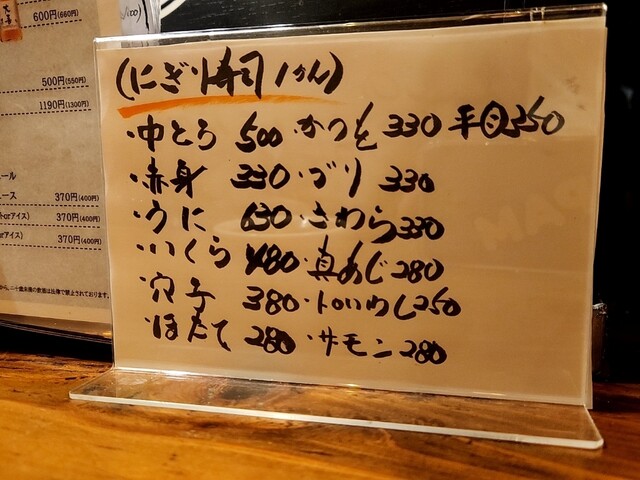 600円(660円)
500円(550円)
1190円(1300円)
ール
ース 370円(400円)
orアイス) 370円(400円)
orアイス) 370円(400円)
(にぎり寿司 1かん)
・中とろ 500 ・かつを 330 平目 350
・赤身 330 ・ブリ 330
・うに 630 ・さわら 330
・いくら 480 ・真あじ 280
・穴子 380 ・トロいわし 250
・ほたて 280 ・サーモン 280